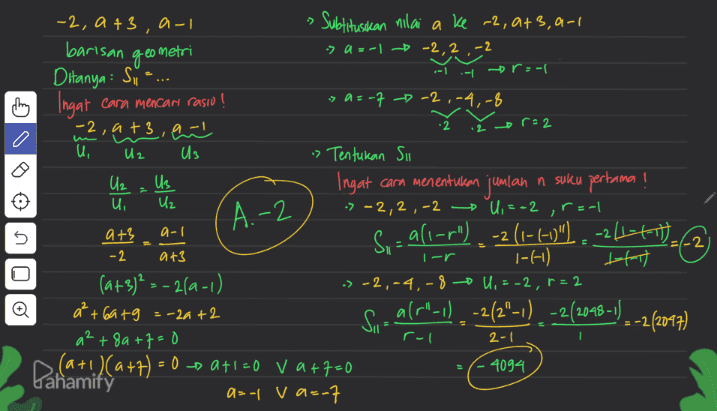 -2, a+3, a-1
barisan geometri
Ditanya : S₁₁ = ...
Ingat cara mencari rasio !
-2, a+3, a-1
U₁ U₂ U₃
U₂/U₁ = U₃/U₂
(a+3)/-2 = (a-1)/(a+3)
(a+3)² = -2(a-1)
a² + 6a+9 = -2a+2
a² + 8a+7 = 0
(a+1)(a+7) = 0 → a+1=0 V a+7=0
a=-1 V a=-7
A. -2
> Subtitusikan nilai a ke -2, a+3, a-1
> a = -1 → -2, 2, -2
.-1 .-1 → r=-1
> a = -7 → -2, -4, -8
.2 .2 → r=2
> Tentukan S₁₁
Ingat cara menentukan jumlah n suku pertama !
> -2, 2, -2 → U₁ = -2, r = -1
S₁₁ = a(1-r¹¹)/(1-r) = -2(1-(-1)¹¹)/(1-(-1)) = -2(1-(-1))/(1-(-1)) = -2
> -2, -4, -8 → U₁ = -2, r = 2
S₁₁ = a(r¹¹-1)/(r-1) = -2(2¹¹-1)/(2-1) = -2(2048-1)/1 = -2(2047)
= -4094
Pahamify